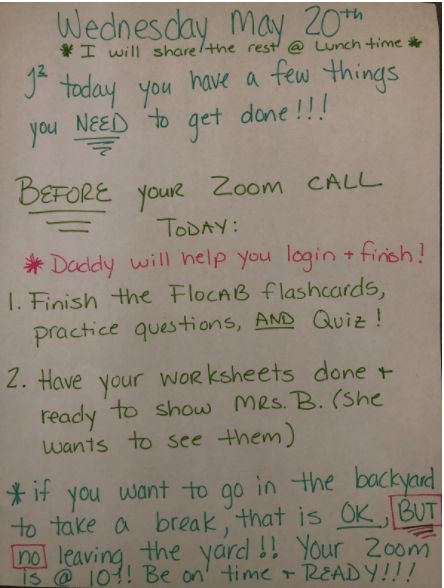 Wednesday May 20th
* I will share the rest @ Lunch time *
J² today you have a few things
you NEED to get done!!!
BEFORE your Zoom CALL
TODAY:
* Daddy will help you login + finish!
1. Finish the FlocAB flashcards,
practice questions, AND Quiz!
2. Have your worksheets done +
ready to show MRS. B. (She
wants to see them)
* if you want to go in the backyard
to take a break, that is OK, BUT
no leaving the yard!! Your Zoom
is @ 10!! Be on time + READY!!!